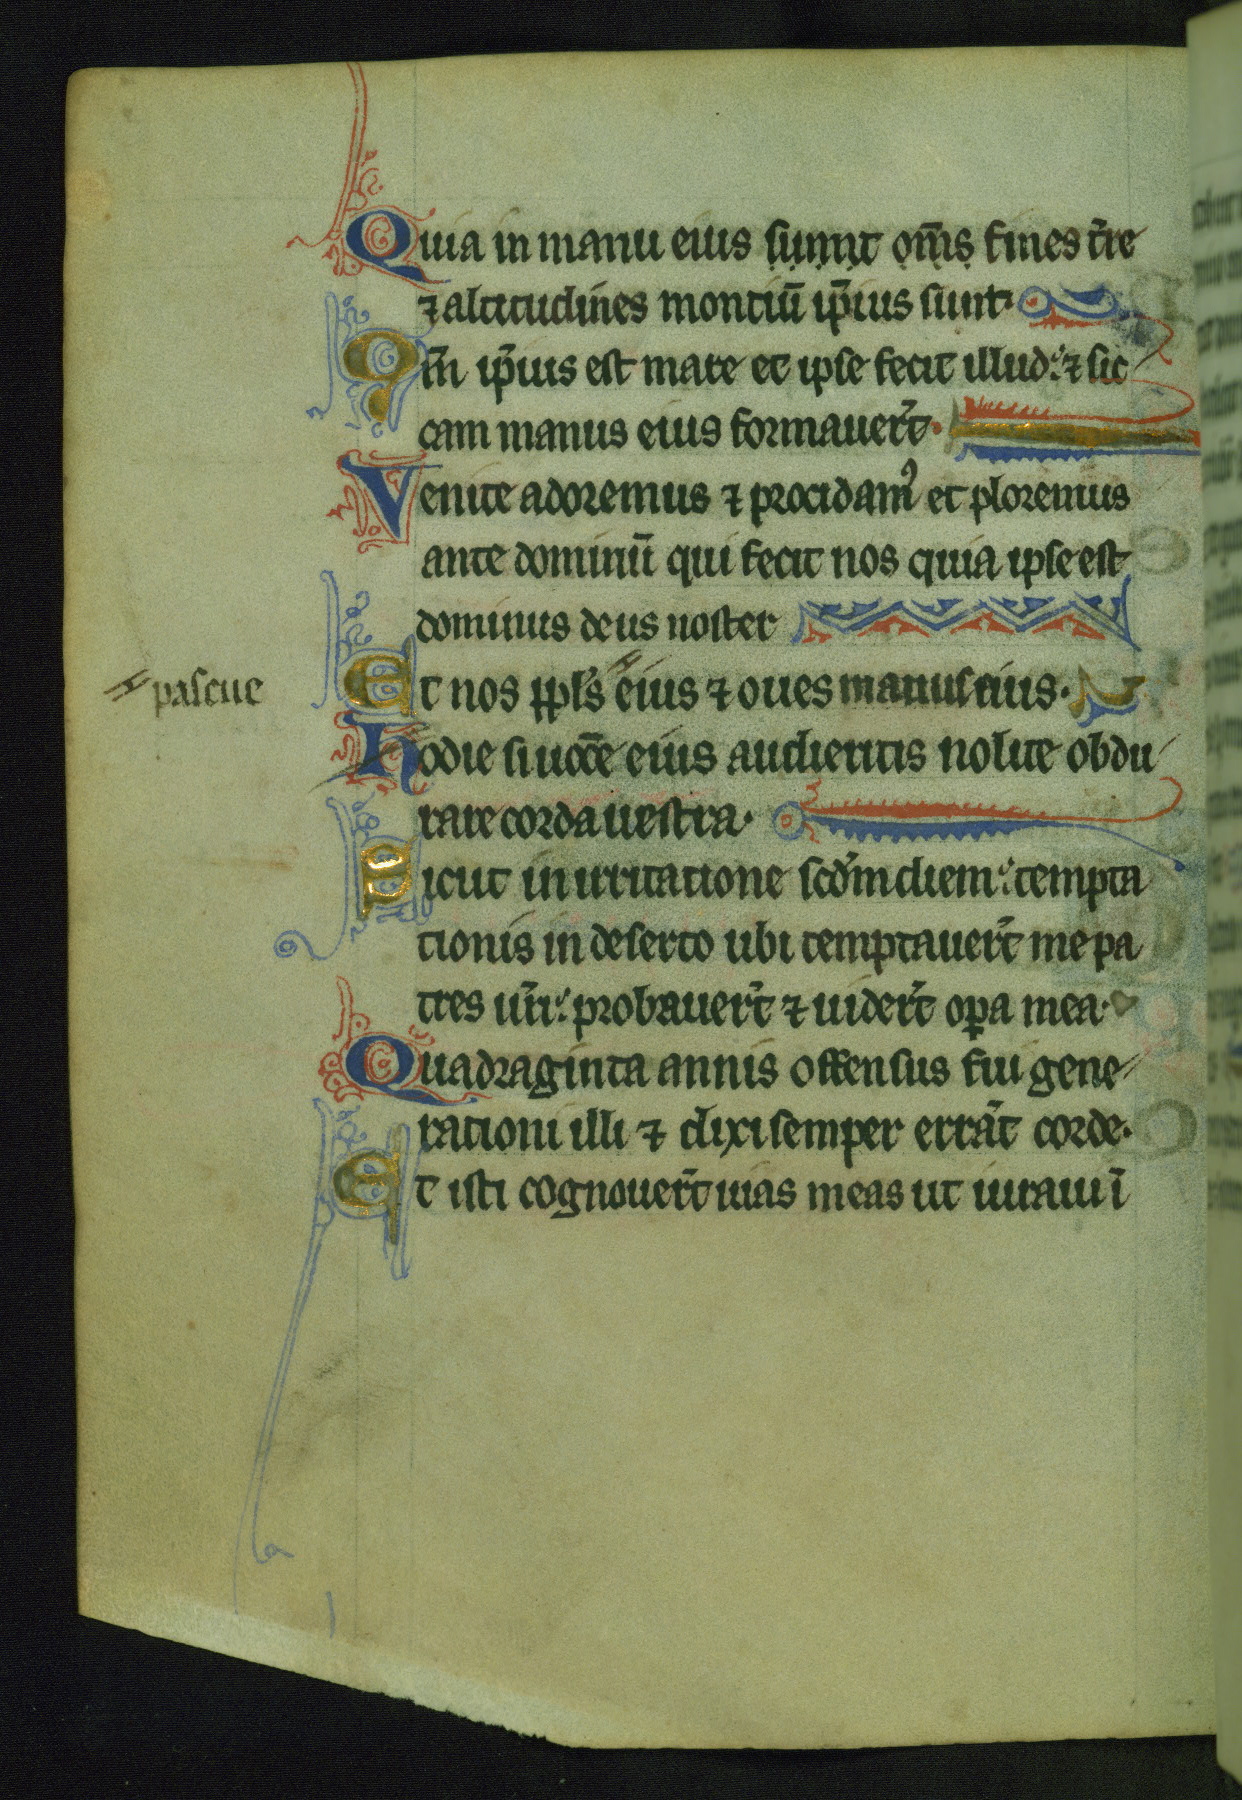 Quia in manu eius sunt om̅s fines t̅re
⁊ altitudines montiu̅ ip̅ius sunt·
Qm̅ ip̅ius est mare et ipse fecit illud: ⁊ sic
cam manus eius formauer̅t·
Venite adoremus ⁊ procidamꝰ et ploremus
ante dominu̅ qui fecit nos quia ipse est
dominus deus noster
pascue
Et nos ppl̅s eius ⁊ oues manus eius·
Hodie si uoce̅ eius audieritis nolite obdu
rare corda uestra·
Sicut in irritatione scd̅m diem: tempta
tionis in deserto ubi temptauer̅t me pa
tres ur̅i: probauer̅t ⁊ uider̅t oꝑa mea·
Quadraginta annis offensus fui gene
rationi illi ⁊ dixi semper erra̅t corde·
Et isti cognouer̅t uias meas ut iuraui i̅